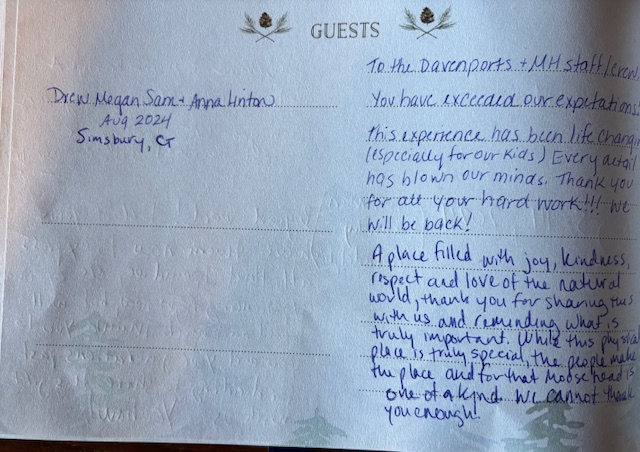 GUESTS
Drew, Megan, Sam + Anna Hinton
Aug 2024
Simsbury, CT
To the Davenports + MH staff/crew,
You have exceeded our expetations!
This experience has been life changin
(especially for our kids) Every detail
has blown our minds. Thank you
for all your hard work!!! We
will be back!
A place filled with joy, kindness,
respect and love of the natural
world, thank you for sharing this
with us and reminding what is
truly important. While this physical
place is truly special, the people make
the place and for that Moosehead is
one of a kind. We cannot thank
you enough!